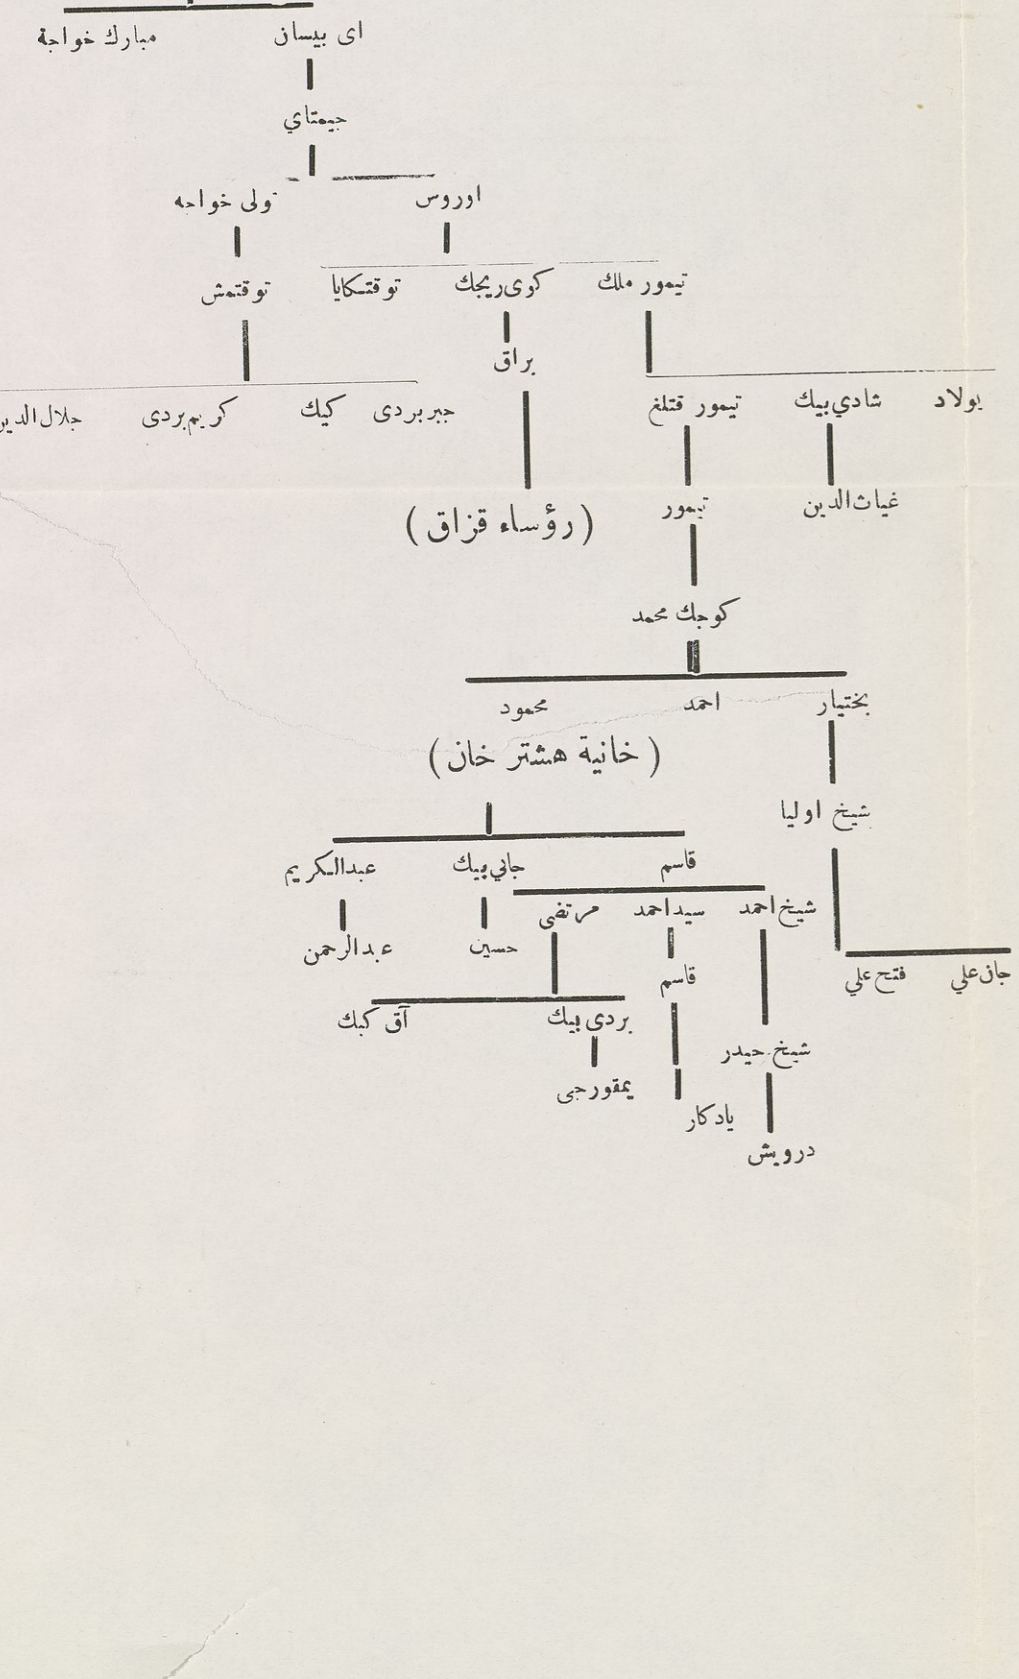 اى بيسان مبارك خواجة
جيمتاي
اوروس تولى خواجه
تيمور ملك كوى ريجك توقتكايا توقتمش
براق
بولاد شادي بيك تيمور قتلغ جبر بردى كيك كريم بردى جلال الدين
غياث الدين تيمور
( رؤساء قزاق )
كوجك محمد
بختيار احمد محمود
( خانية هشتر خان )
شيخ اوليا
قاسم جاني بيك عبد الكريم
شيخ احمد سيد احمد مرتضى
حسين عبد الرحمن
جان علي فتح علي قاسم
بردى بيك آق كبك
شيخ حيدر
يمقورجى
يادكار
درويش